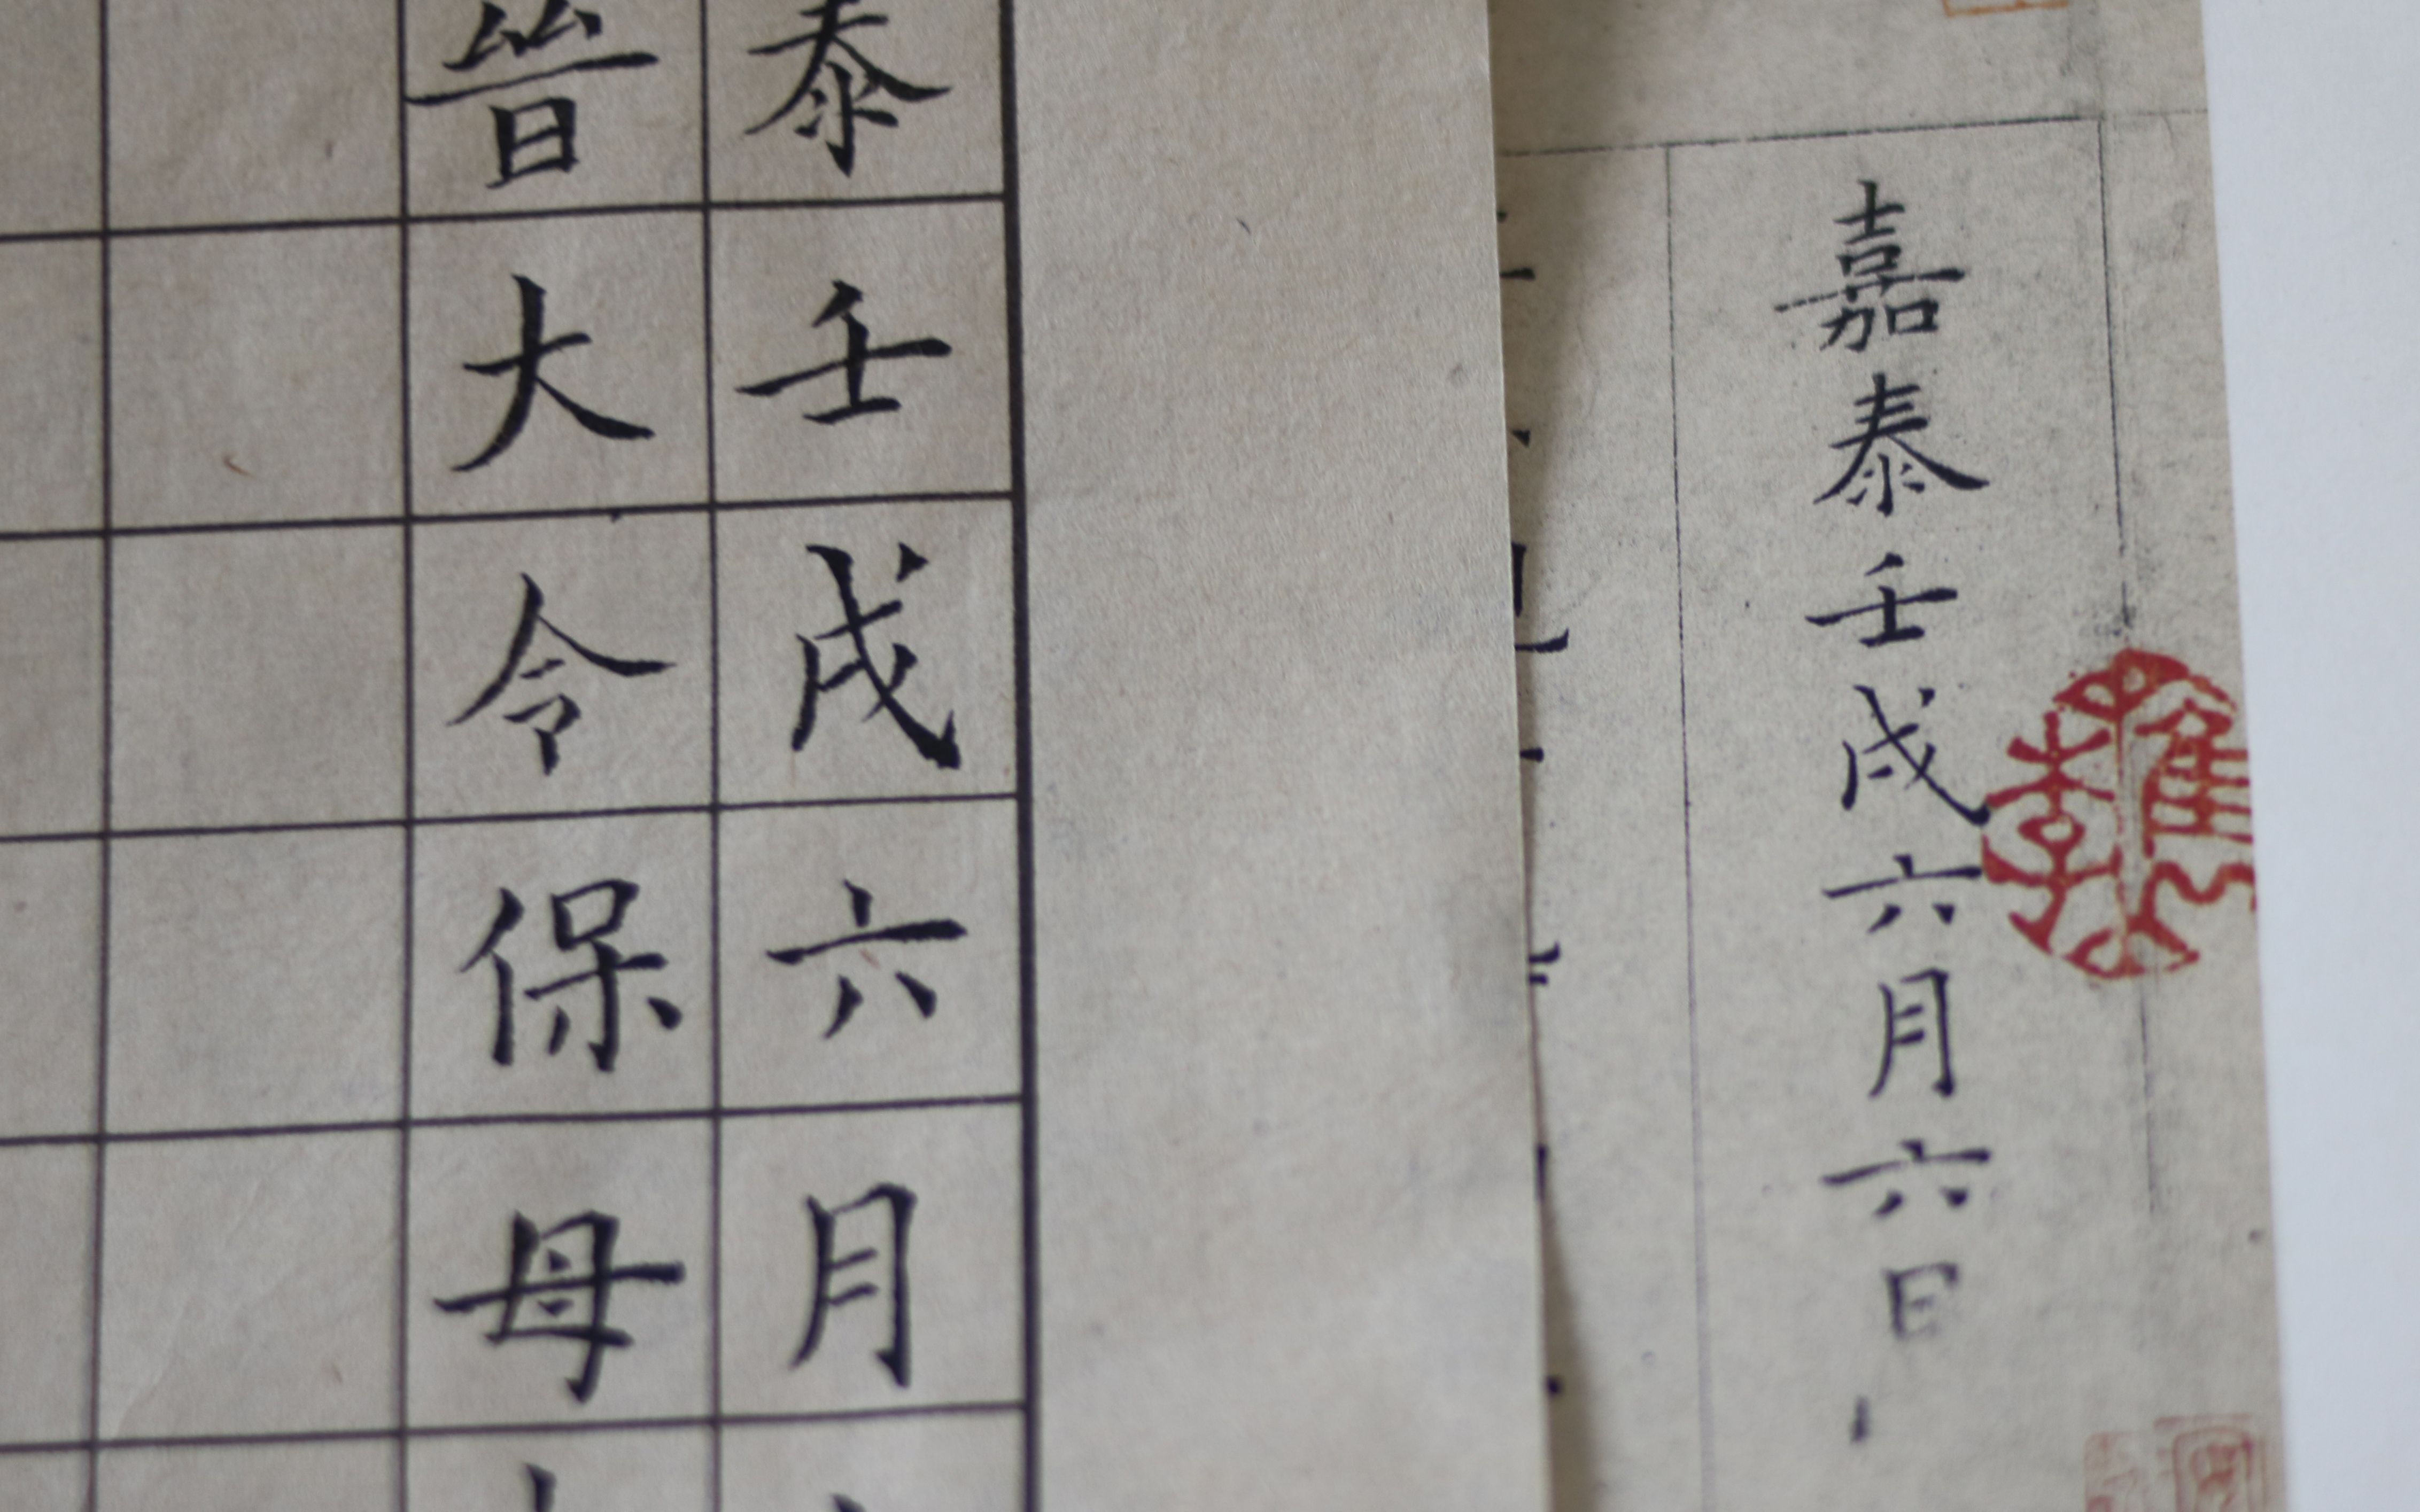 嘉泰壬戌六月六日
泰壬戌六月
晉大令保母